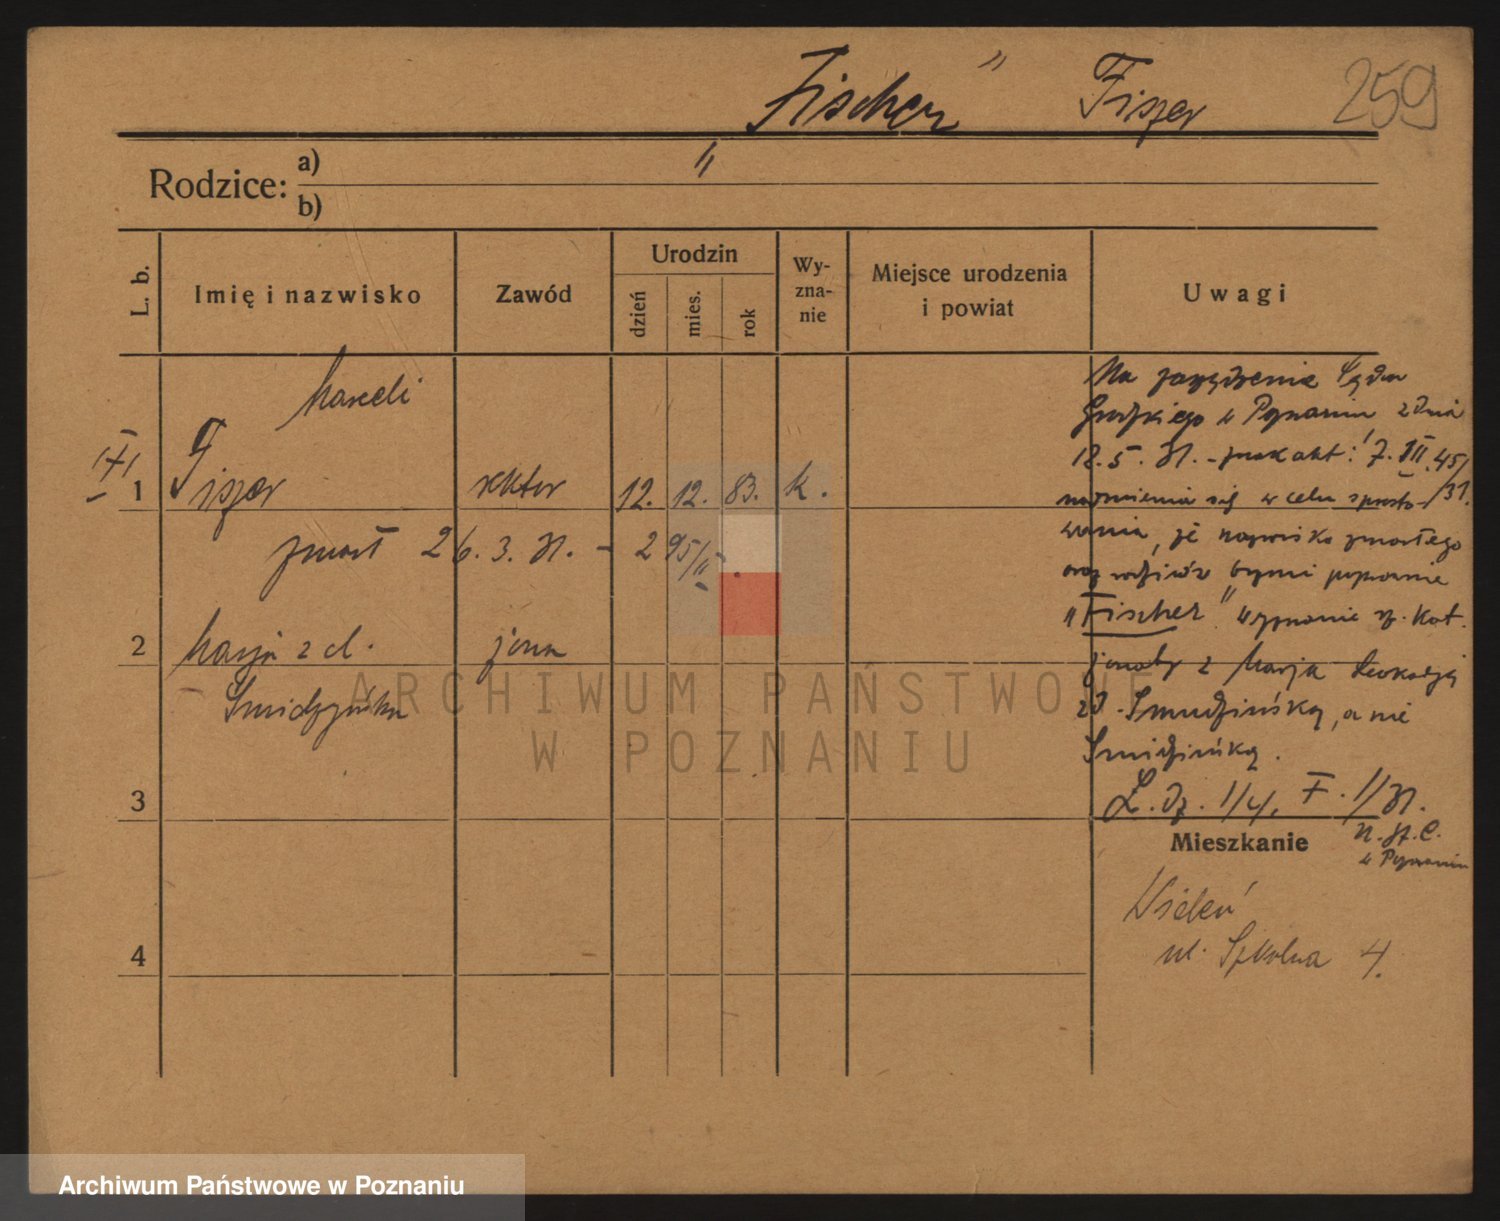 „Fischer” Fiszer 259
Rodzice: a)
b)
L. b. Imię i nazwisko Zawód Urodzin dzień mies. rok Wy-zna-nie Miejsce urodzenia i powiat Uwagi
Marceli
1 Fiszer rektor 12. 12. 83. k.
zmarł 26. 3. 31. – 295/II
2 Marja z d. żona
Smidzyńska
3
4
Na zarządzenie Sądu
Grodzkiego w Poznaniu z dnia
18.5.31. – znak akt: 7. III. 45/31.
nadmienia się w celu sprosto-
wania, że nazwisko zmarłego
oraz rodziców brzmi poprawnie
„Fischer” wyznanie rz. kat.
żonaty z Marją Leokadją
zd. Smudzińską, a nie
Smidzińską.
L. dz. I/4. F. 1/31.
U. St. C.
w Poznaniu
Mieszkanie
Wieleń
ul. Szkolna 4.
ARCHIWUM PAŃSTWOWE
W POZNANIU
Archiwum Państwowe w Poznaniu